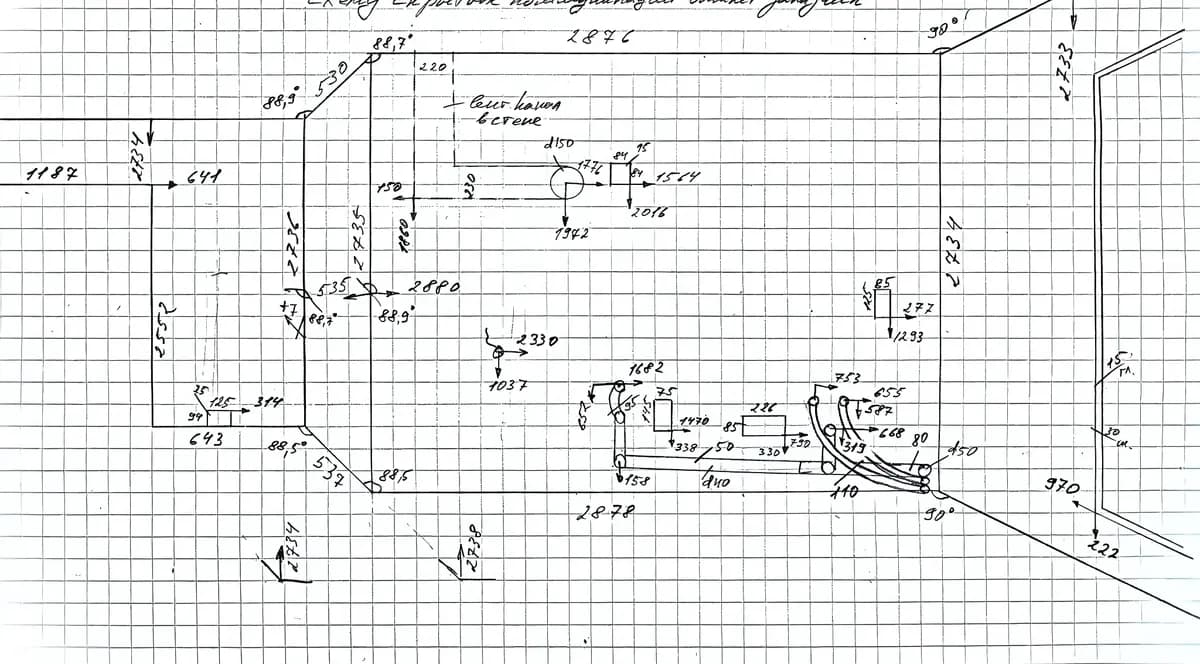 88,7°
2876
90°
530
220
2733
88,9°
вент. канал
в стене
d150
15
84
2734
1776
84
1564
1187
641
150
230
2016
1860
1972
2736
2735
2734
535
2880
85
125
277
+7
88,7°
88,9°
1293
2552
2330
15
гл.
1682
753
1037
75
655
25
125
314
652
95
145
226
587
94
1470
85
668
30
643
338
50
330
790
319
80
d50
88,5°
537
88,5
158
d40
110
970
2878
90°
2734
2738
222